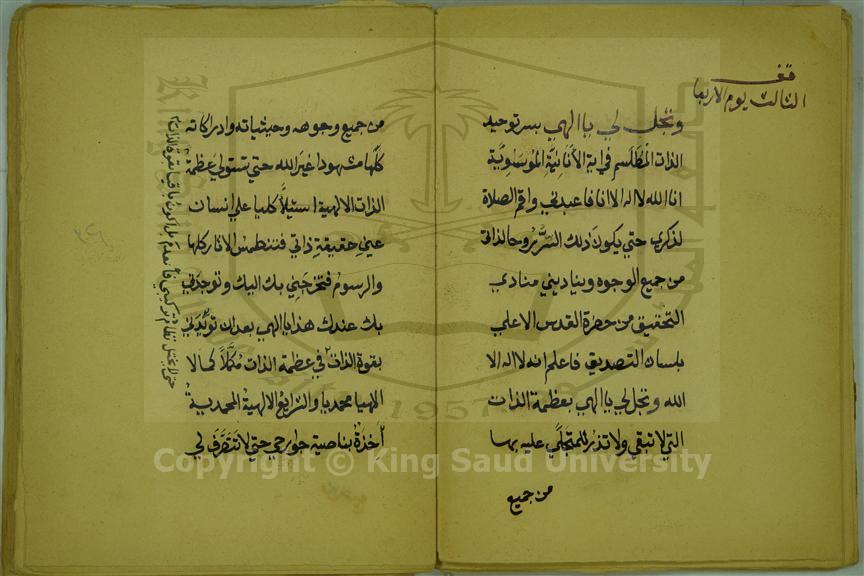 قف
الثالث يوم الاربعا
وتجل لي ياالهي بسر توحيد
الذات المُطَلْسَم في اية الأَنَانِيَّة الموسَوِيَّة
انا الله لا اله الا انا فاعبدني واقم الصلاة
لذكري حتي يكون ذلك السِّرُ روحا لذاتي
من جميع الوجوه وينا ديني منادي
التحقيق من حضرة القدس الاعلي
بلسان التصديق فاعلم انه لا اله الا
الله وتجل لي ياالهي بعظمة الذات
التي لا تبقي ولا تذر للمتجلَّي عليه بها
من جميع
من جميع وجوهه وحيثياته وادراكاته
كلِّها مشهودا غيَر الله حتي تستولي عظمة
الذات الالهية استيلاًء كليا علي انسان
عين حقيقةِ ذاتي فتنطمس الاثار كلها
والرسوم فتخرجني بك اليك وتوجدني
بك عندك هذا ياالهي بعد ان تؤَيِّدَني
بقوة الذات في عظمة الذات مُكَمَّلاً كمالا
الهيا محمديا والشرايع الالهية المحمدية
أخذةٌ بناصية جوارحي حتي لا تتصَرَّفَ لي
حتي لا يختل نظام تركيبي فأنعدم بل اكون باقيا بقوة الذات
Copyright © King Saud University
1957